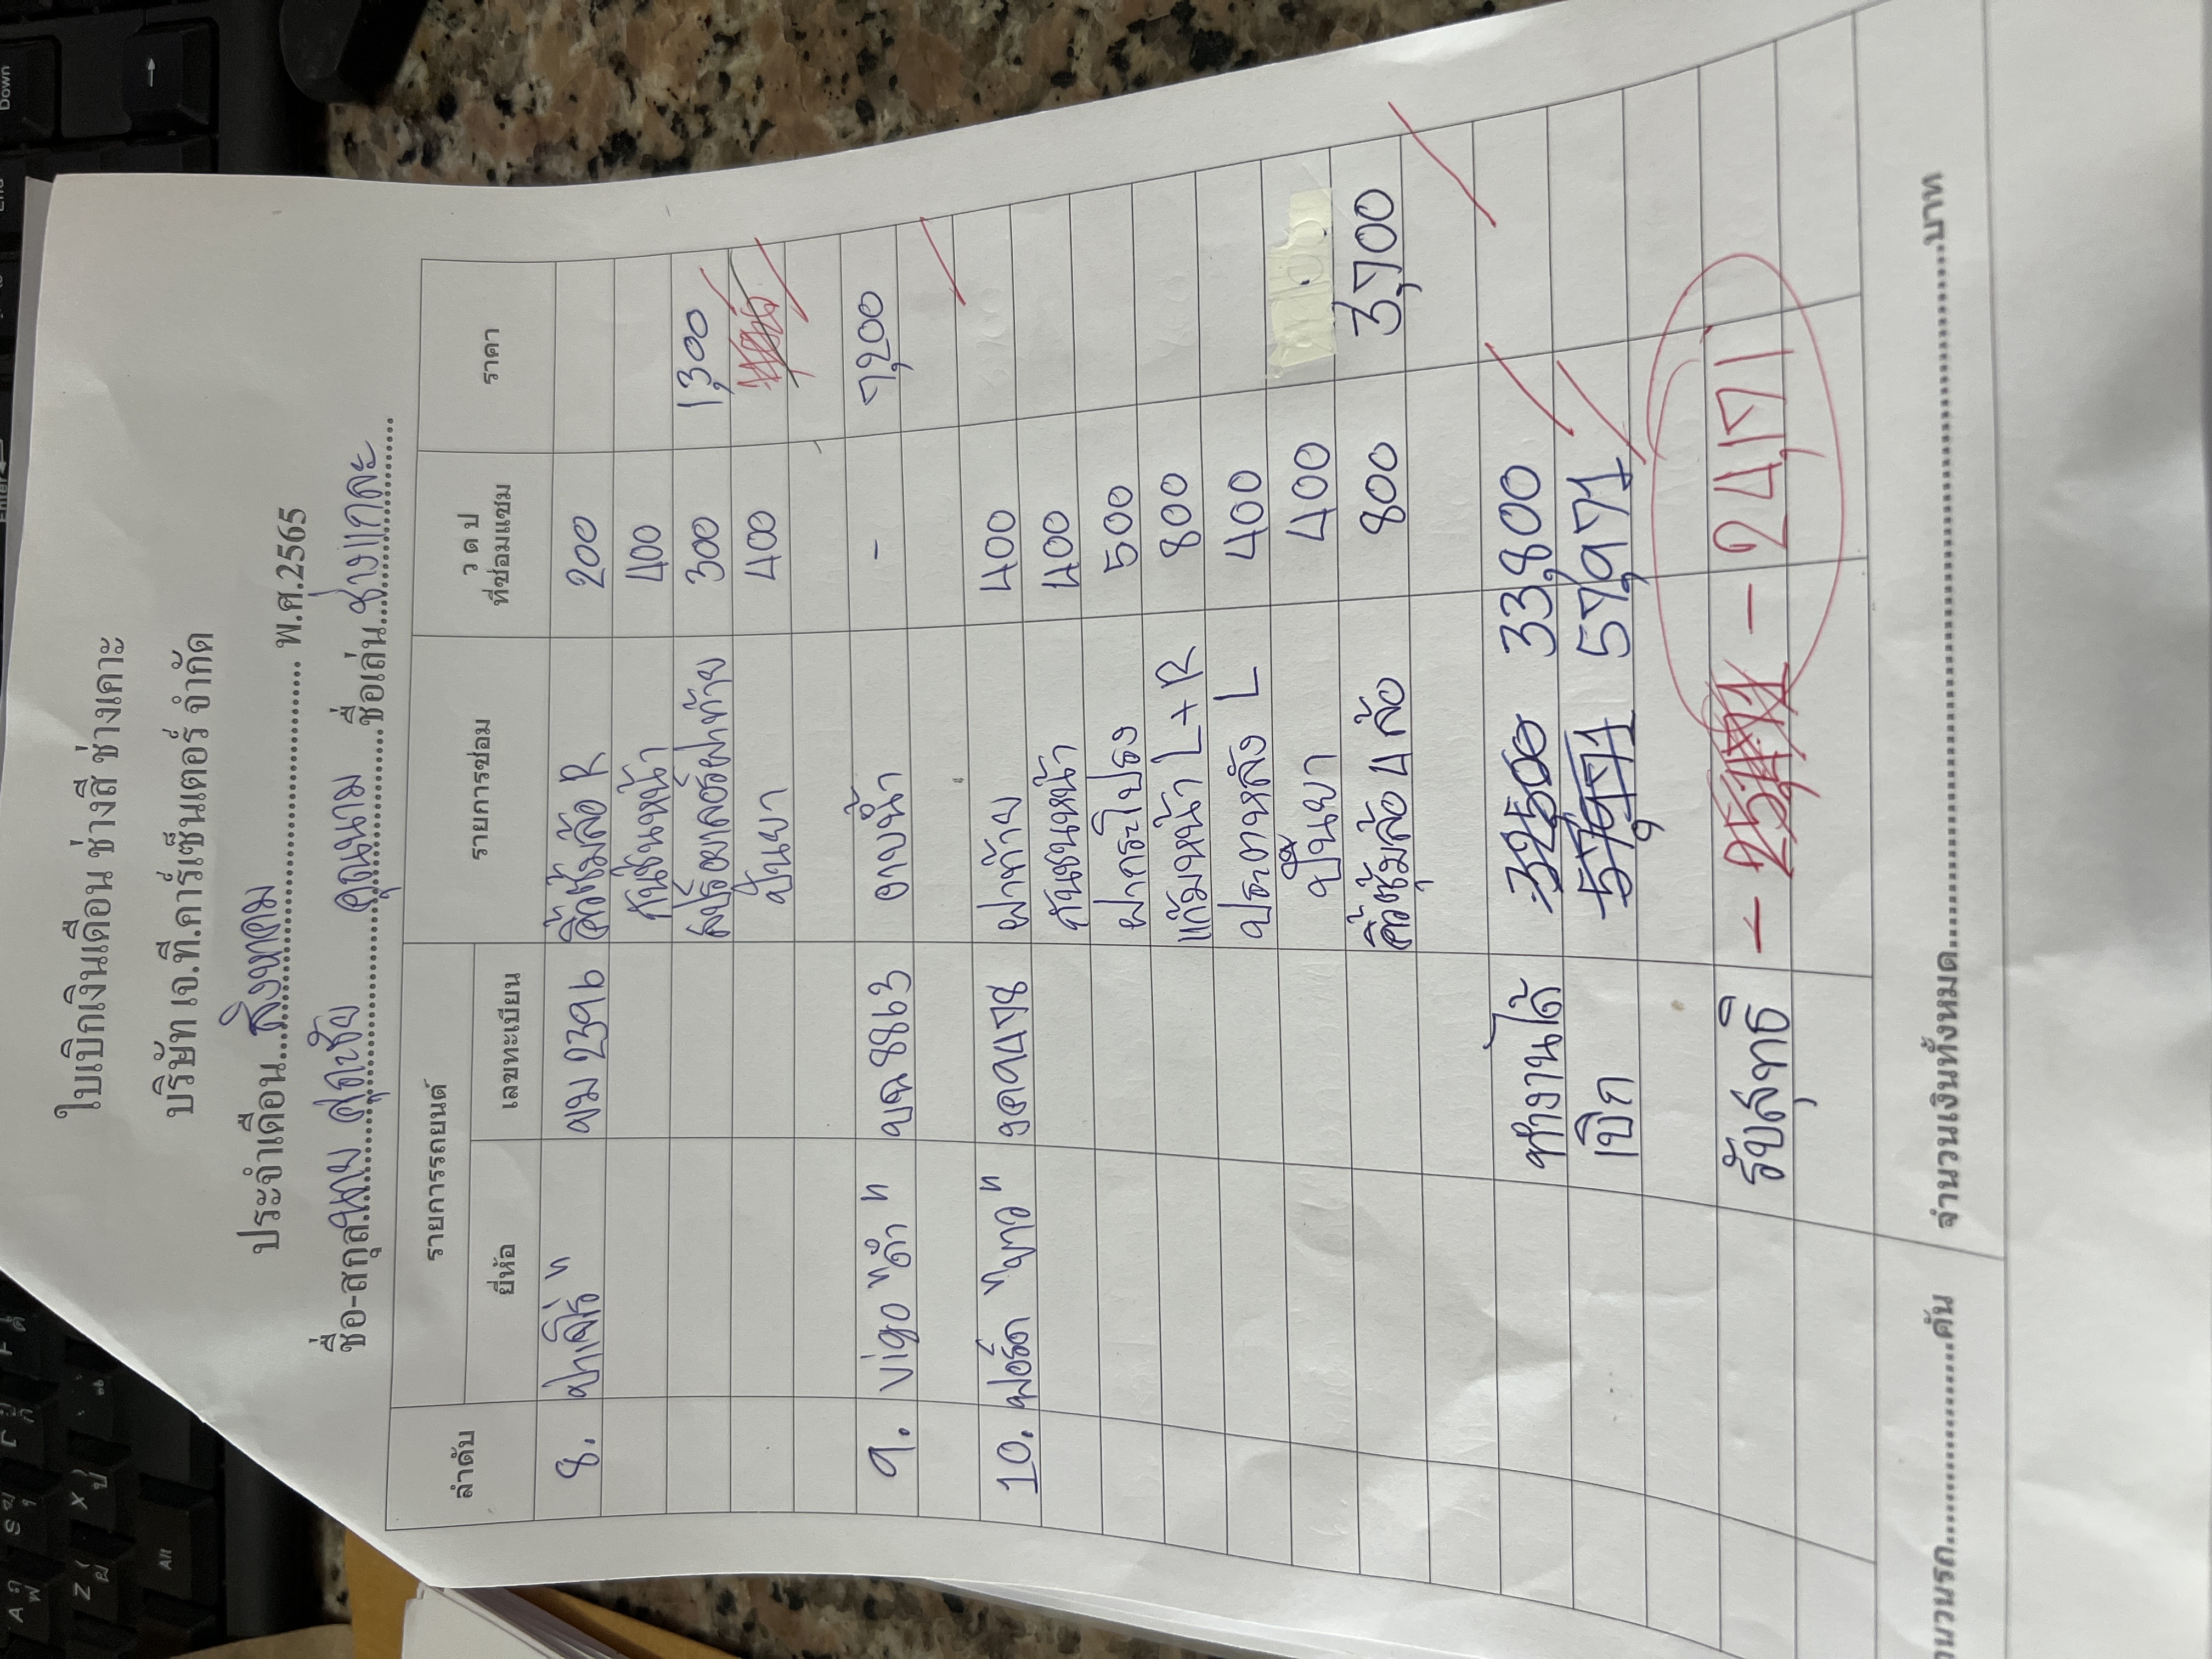 ใบเบิกเงินเดือน ช่างสี ช่างเคาะ
บริษัท เจ.ที.คาร์เซ็นเตอร์ จำกัด
ประจำเดือน สิงหาคม พ.ศ.2565
ชื่อ-สกุล นาย สุดชัย คุณนาม ชื่อเล่น ช่างแกละ
ลำดับ รายการรถยนต์ รายการซ่อม ว ด ป ที่ซ่อมแซม ราคา
ยี่ห้อ เลขทะเบียน
8. ปาเจโร่ " 2396 คิ้วซุ้มล้อ R 200
กันชนหน้า 400
สปอยเลอร์ฝาท้าย 300 1,300
ปั้นยา 400
9. vigo "ดำ" บฉ 8863 อาบน้ำ - 7,200
10. ฟอร์ด "ขาว" 9478 ฝาท้าย 400
กันชนหน้า 400
ฝากระโปรง 500
แก้มหน้า L+R 800
ประตูหลัง L 400
ปั้นยา 400
คิ้วซุ้มล้อ 4 ล้อ 800 3,700
ทำงานได้ 32500 33,800
เบิก 57,971 57,971
รับสุทธิ - 24,171
จำนวนรถ คัน จำนวนเงินทั้งหมด บาท
Down
End
Enter
Alt
A ฤ ฟ
S ฆ
Z ( ผ
X ) ป